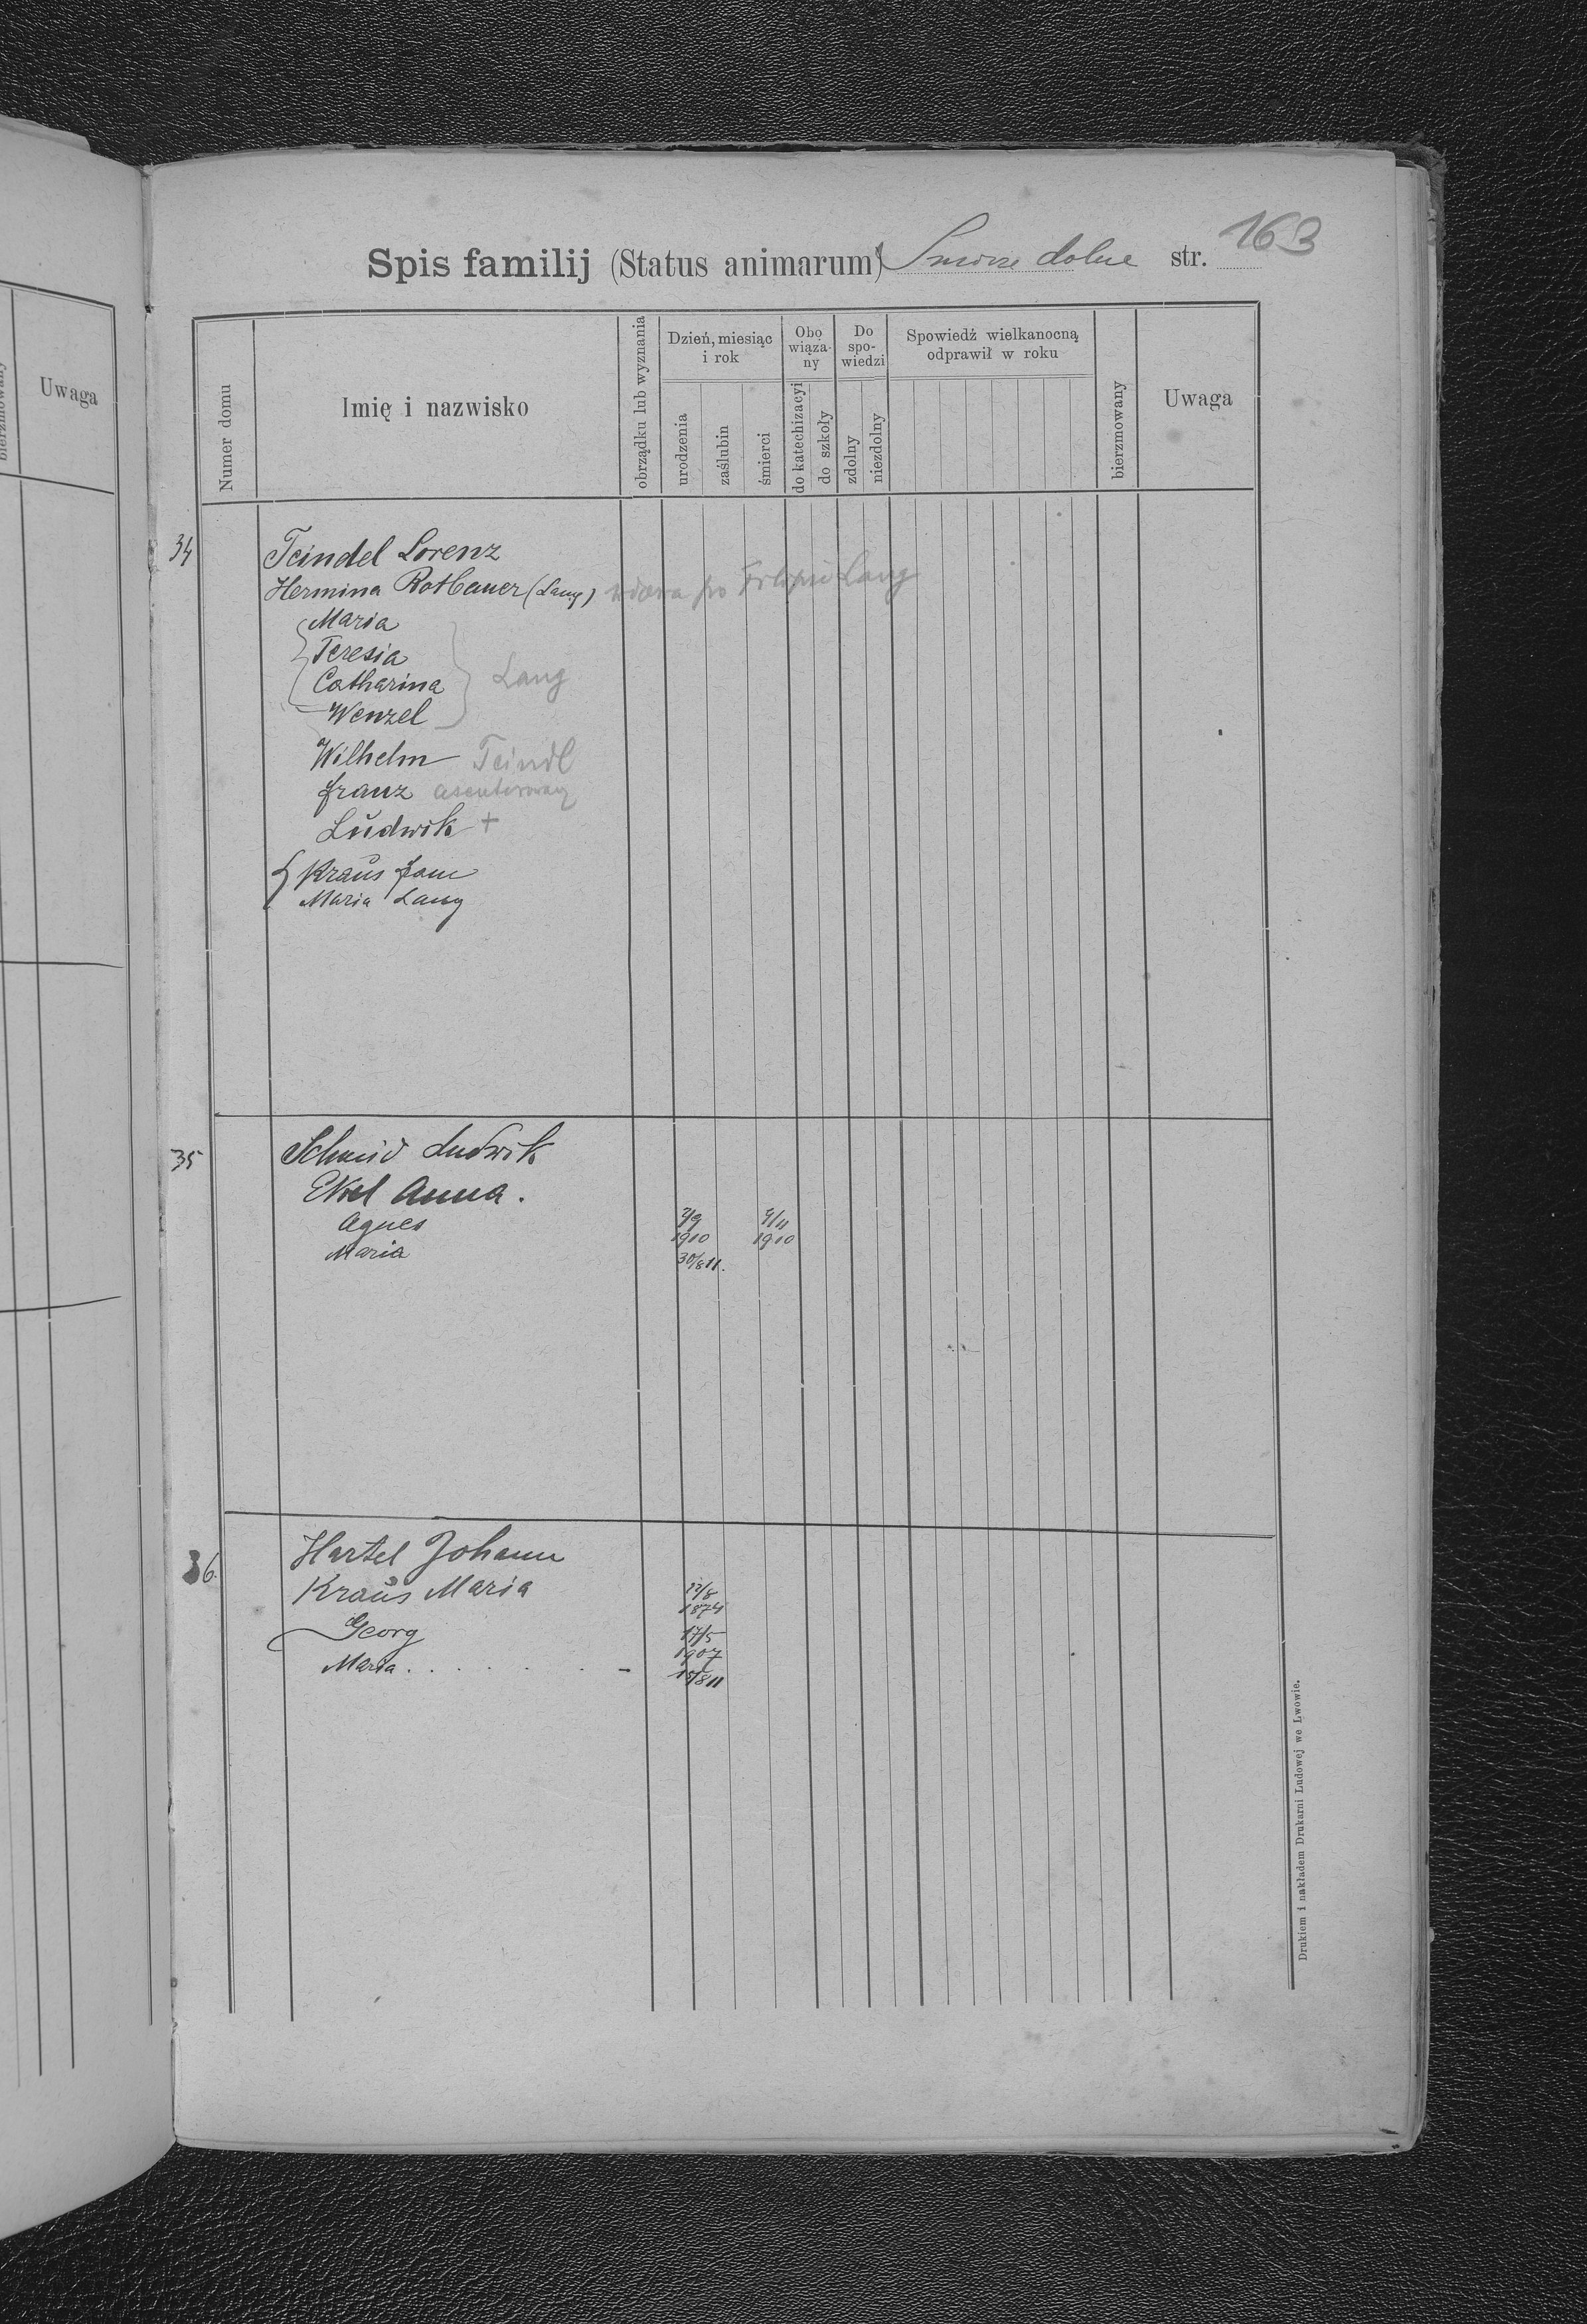 Uwaga
bierzmowany
Spis familij (Status animarum) Smorze dolne str. 163
Numer domu
Imię i nazwisko
obrządku lub wyznania
Dzień, miesiąc
i rok
urodzenia
zaślubin
śmierci
Obo
wiąza-
ny
do katechizacyi
do szkoły
Do
spo-
wiedzi
zdolny
niezdolny
Spowiedź wielkanocną
odprawił w roku
bierzmowany
Uwaga
34 Teindel Lorenz
Hermina Rotbauer (Lang) wdowa po Filipie Lang
Maria
Teresia
Catharina Lang
Wenzel
Wilhelm Teindl
Franz asenterowany
Ludwik +
Kraus
Maria Lang
35 Schmid Ludwik
Ekel Anna.
Agnes 2/9 1910 9/11 1910
Maria 30/8 11.
36. Hartel Johann
Kraus Maria 22/8 1874
Georg 17/5 1907
Maria . . . . . . - 15/8 11
Drukiem i nakładem Drukarni Ludowej we Lwowie.